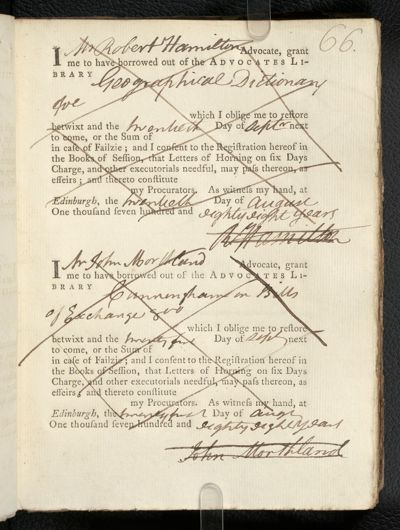 66.
I Mr Robert Hamilton Advocate, grant
me to have borrowed out of the ADVOCATES LI-
BRARY Geographical Dictionary
8vo
which I oblige me to restore
betwixt and the twentieth Day of Septr next
to come, or the Sum of
in case of Failzie; and I consent to the Registration hereof in
the Books of Session, that Letters of Horning on six Days
Charge, and other executorials needful, may pass thereon, as
effeirs; and thereto constitute
my Procurators. As witness my hand, at
Edinburgh, the twentieth Day of August
One thousand seven hundred and eighty eight years
Rt Hamilton
I Mr John Morthland Advocate, grant
me to have borrowed out of the ADVOCATES LI-
BRARY Cunningham on Bills
of Exchange 8vo
which I oblige me to restore
betwixt and the twenty first Day of Septr next
to come, or the Sum of
in case of Failzie; and I consent to the Registration hereof in
the Books of Session, that Letters of Horning on six Days
Charge, and other executorials needful, may pass thereon, as
effeirs; and thereto constitute
my Procurators. As witness my hand, at
Edinburgh, the twenty first Day of Augt
One thousand seven hundred and eighty eight years
John Morthland